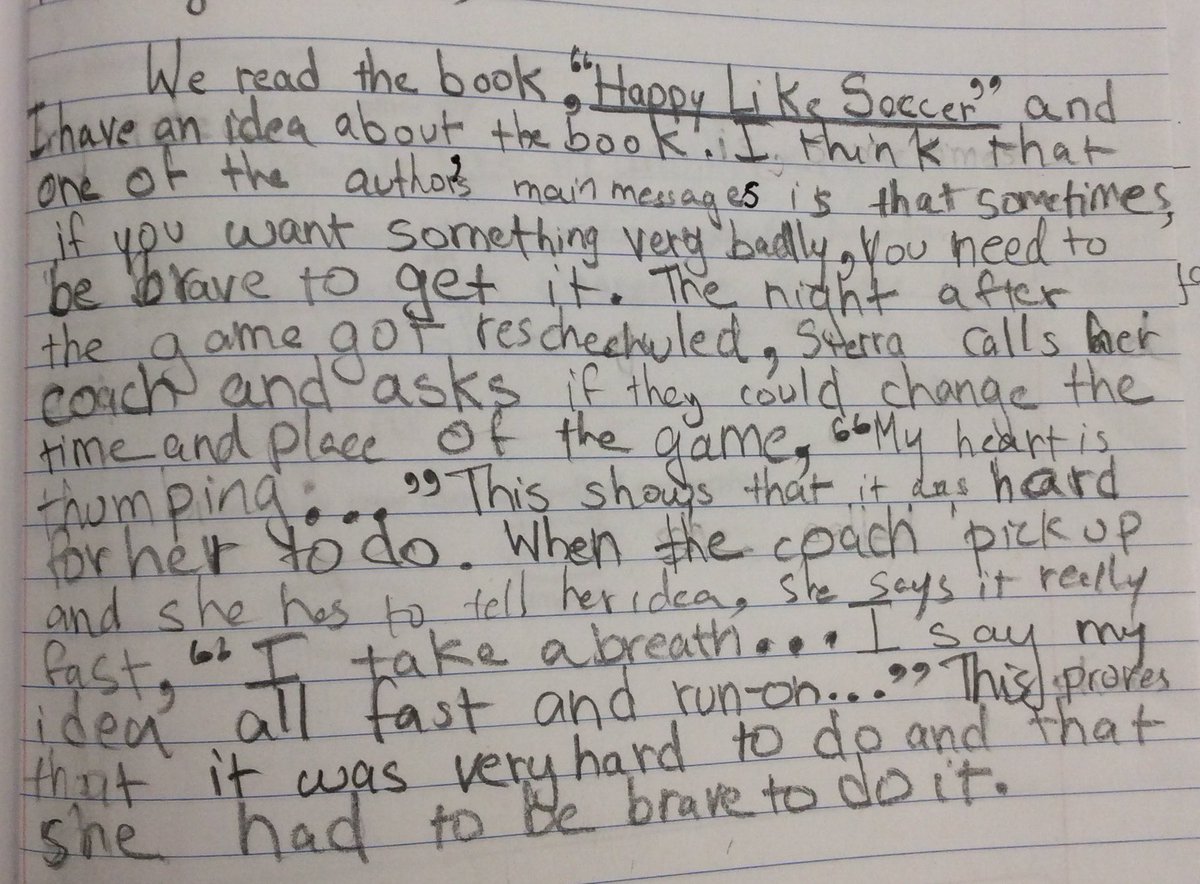 We read the book, "Happy Like Soccer" and
I have an idea about the book. I think that
one of the author's main messages is that sometimes,
if you want something very badly, you need to
be brave to get it. The night after
the game got rescheehuled, Sierra calls her
coach and asks if they could change the
time and place of the game, "My heart is
thumping...." This shows that it was heard
for her to do. When the coach pick up
and she has to tell her idea, she says it really
fast, "I take a breath... I say my
idea all fast and run-on..." This proves
that it was very hard to do and that
she had to be brave to do it.